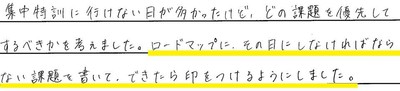 集中特訓に行けない日が多かったけど、どの課題を優先して
するべきかを考えました。ロードマップに、その日にしなければなら
ない課題を書いて、できたら印をつけるようにしました。